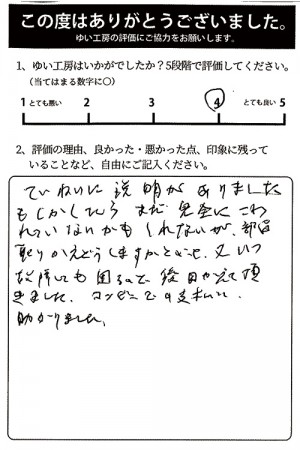 この度はありがとうございました。
ゆい工房の評価にご協力をお願いします。
1、ゆい工房はいかがでしたか？5段階で評価してください。
（当てはまる数字に○）
1 とても悪い 2 3 4 とても良い 5
2、評価の理由、良かった・悪かった点、印象に残って
いることなど、自由にご記入ください。
ていねいに説明がありました
もしかしたらまだ完全にこわ
れていないかもしれないが、部品
取りかえどうしますかとで、又いつ
故障しても困るので後日かえて頂
きました、コンビニでの支払い、
助かりました。